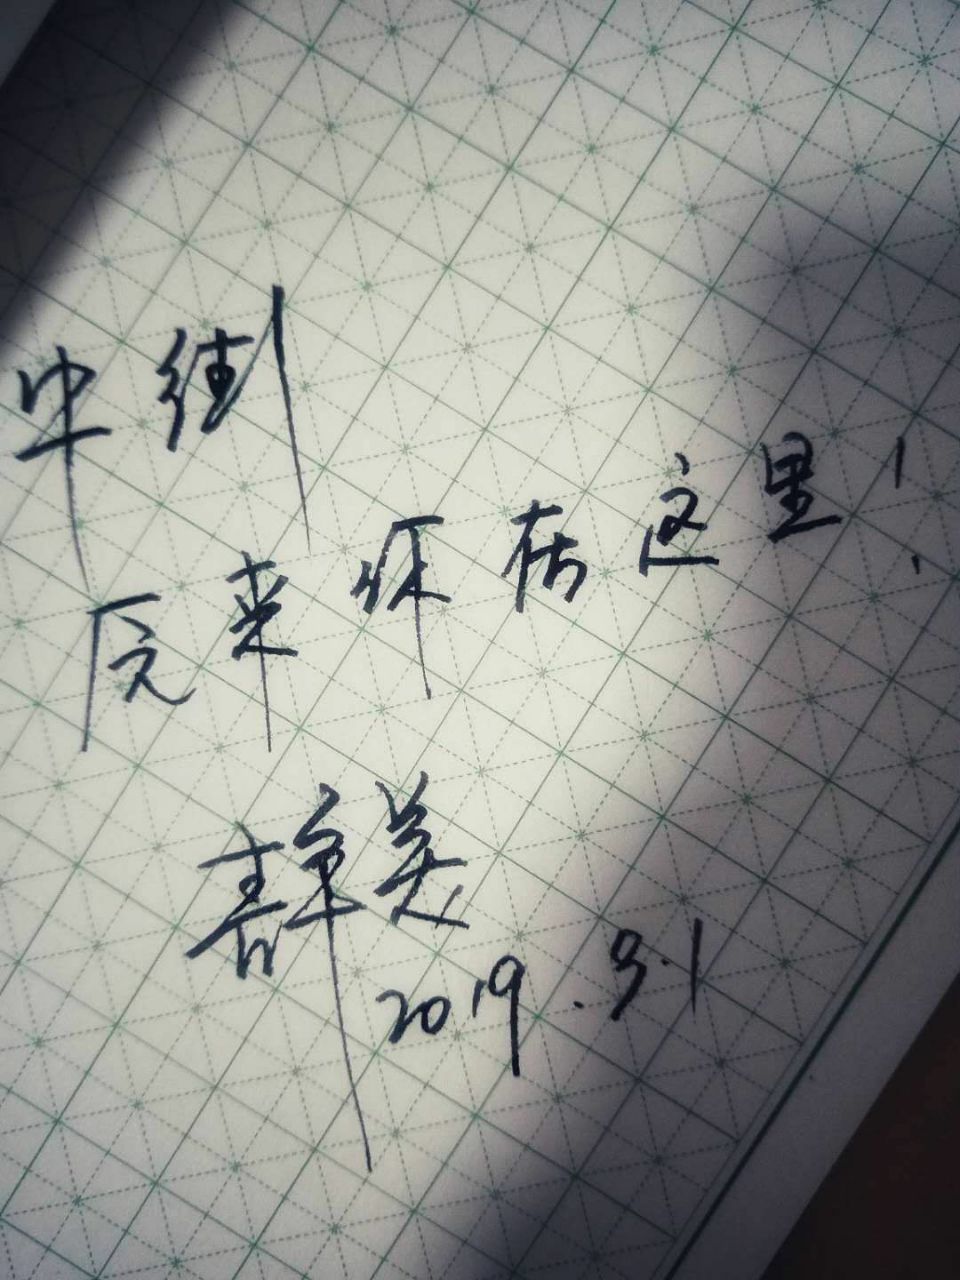 中街
原来你在这里！
静美
2019.3.1